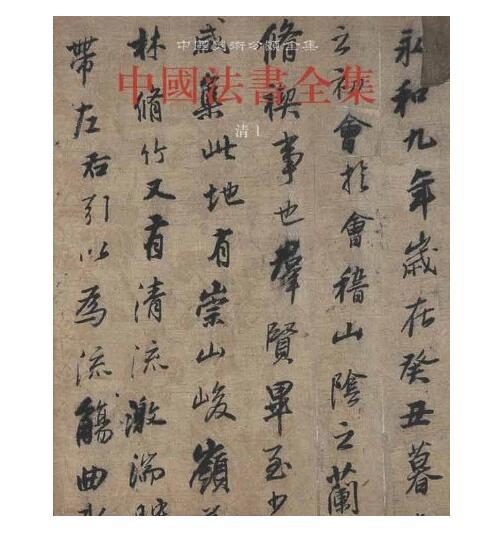 中國美術分類全集
中國法書全集
清1
永和九年歲在癸丑暮
之初會扵會稽山陰之蘭
脩禊事也羣賢畢至少
咸集此地有崇山峻嶺
林脩竹又有清流激湍映
帶左右引以為流觴曲水